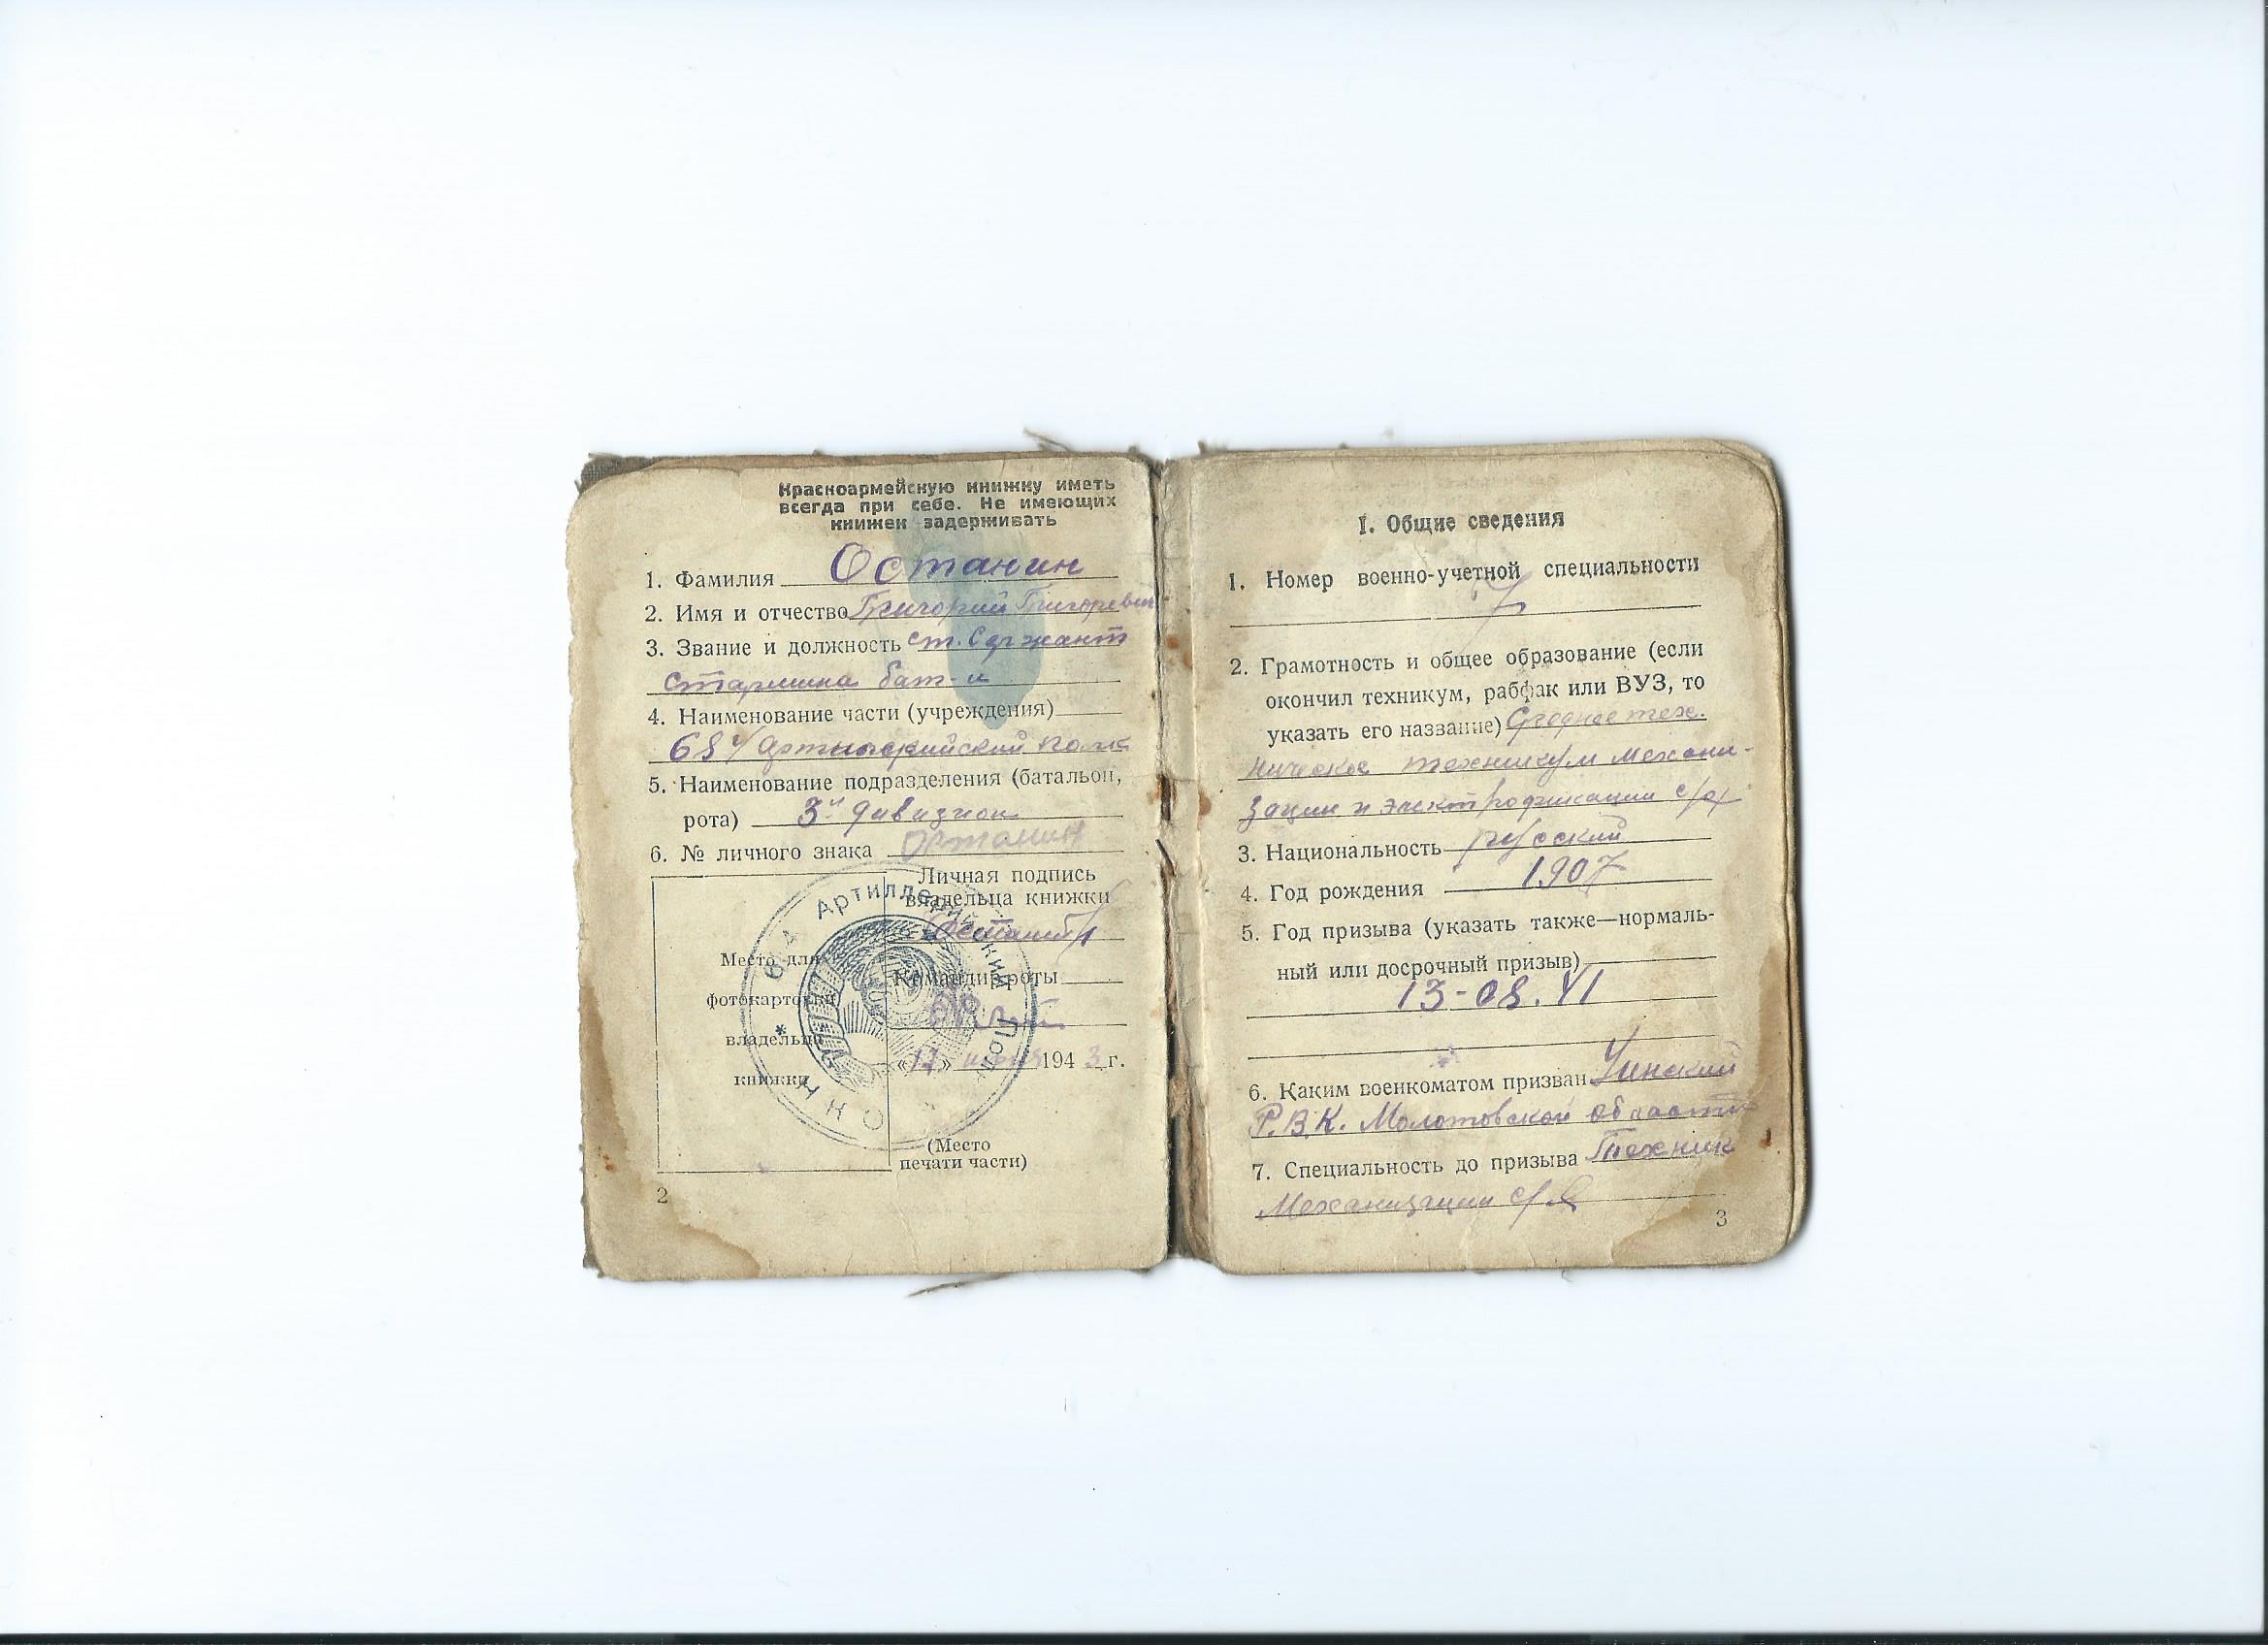 Красноармейскую книжку иметь
всегда при себе. Не имеющих
книжек задерживать
1. Фамилия Останин
2. Имя и отчество Григорий Григоревич
3. Звание и должность ст. Сержант
Старшина бат-и
4. Наименование части (учреждения)
артиллерийский полк
5. Наименование подразделения (батальон,
рота) 3й дивизион
6. № личного знака Останин
Личная подпись
владельца книжки
Останин
Командир роты
Место для
фотокарточки
владельца
книжки
«17» 1943 г.
(Место
печати части)
Артиллерийский Полк
НКО
2
I. Общие сведения
1. Номер военно-учетной специальности
2. Грамотность и общее образование (если
окончил техникум, рабфак или ВУЗ, то
указать его название) Среднее тех.
ническое техникум механи-
зации и электрофикации с/х
3. Национальность русский
4. Год рождения 1907
5. Год призыва (указать также—нормаль-
ный или досрочный призыв)
13-08.41
6. Каким военкоматом призван Уинский
Р.В.К. Молотовской области
7. Специальность до призыва Техник
Механизации с/х
3